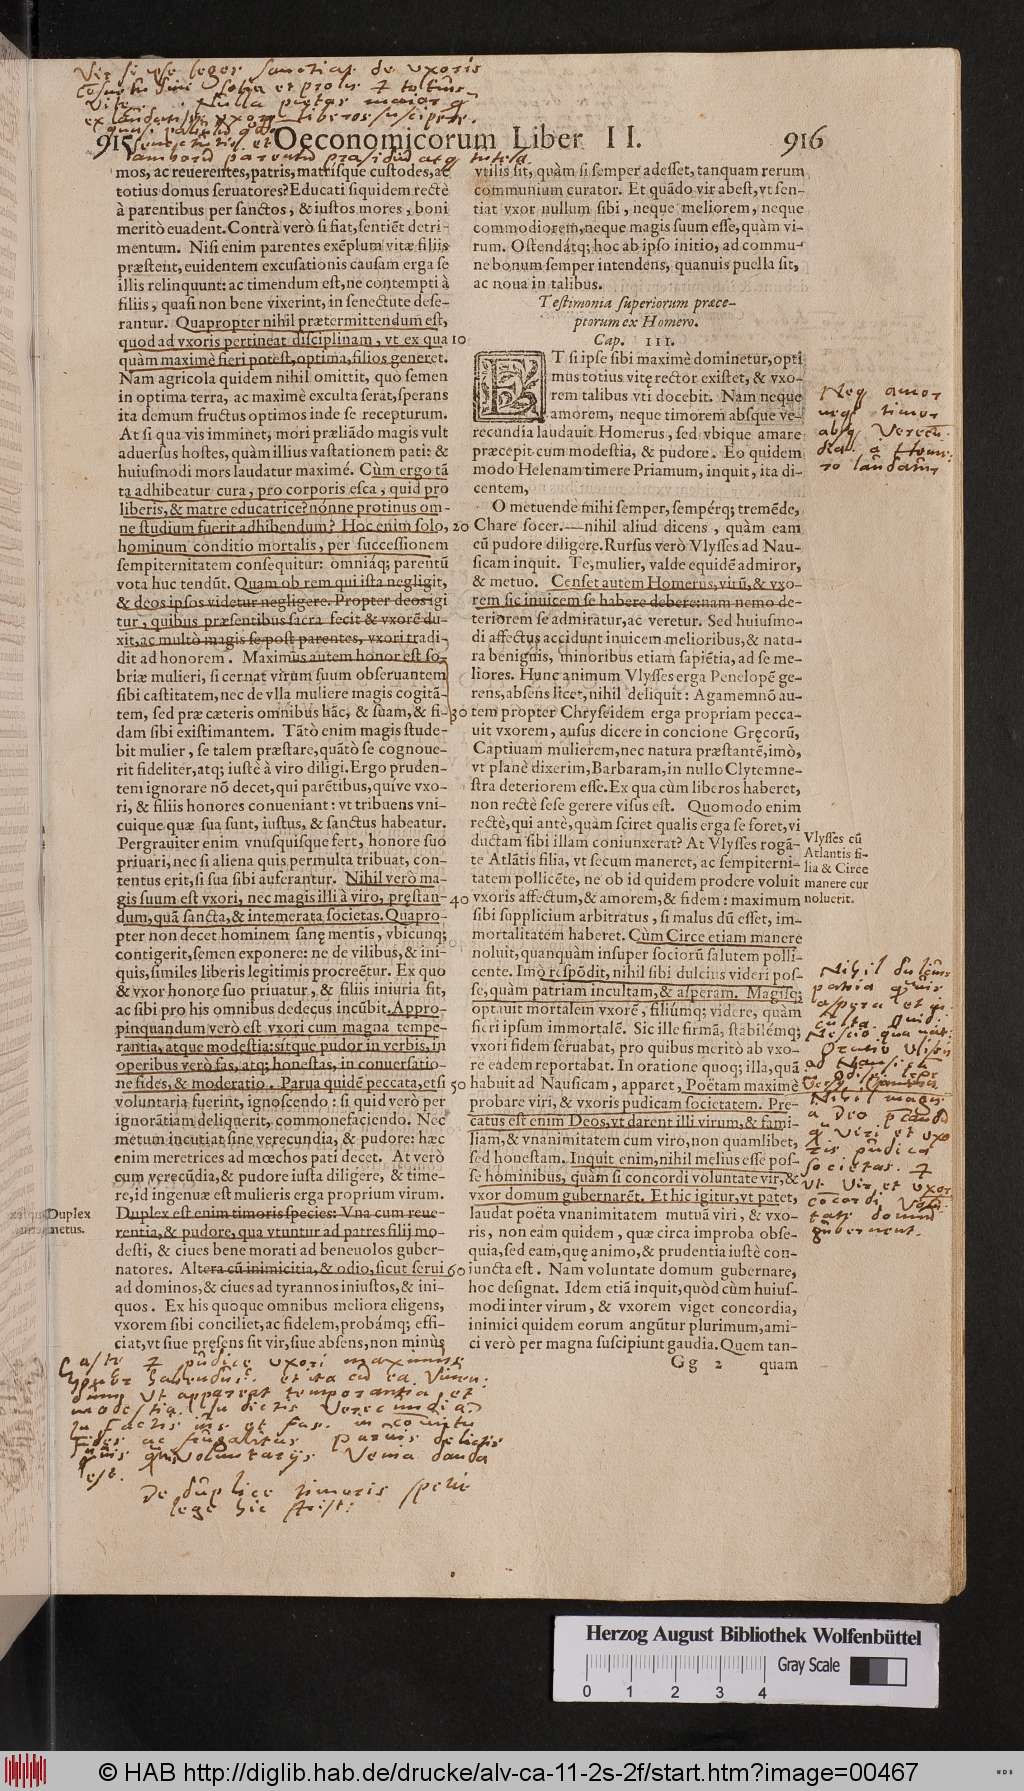 Vir si ipse leges sanctitatis de uxoris
Nulla pietas maior
ex uxore liberos suscipere.
senectutis et
parentum præsidium atq tutela
915 Oeconomicorum Liber II. 916
mos, ac reuerentes, patris, matrisque custodes, ac
totius domus seruatores? Educati siquidem rectè
à parentibus per sanctos, & iustos mores, boni
meritò euadent. Contrà verò si fiat, sentiēt detri-
mentum. Nisi enim parentes exēplum vitæ filiis
præstent, euidentem excusationis causam erga se
illis relinquunt: ac timendum est, ne contempti à
filiis, quasi non bene vixerint, in senectute dese-
rantur. Quapropter nihil prætermittendum est,
quod ad vxoris pertineat disciplinam, vt ex qua 10
quàm maximè fieri potest, optima, filios generet.
Nam agricola quidem nihil omittit, quo semen
in optima terra, ac maximè exculta serat, sperans
ita demum fructus optimos inde se recepturum.
At si qua vis imminet, mori præliādo magis vult
aduersus hostes, quàm illius vastationem pati: &
huiusmodi mors laudatur maximé. Cùm ergo tā
ta adhibeatur cura, pro corporis esca, quid pro
liberis, & matre educatrice? nónne protinus om-
ne studium fuerit adhibendum? Hoc enim solo, 20
hominum conditio mortalis, per successionem
sempiternitatem consequitur: omniáq; parentū
vota huc tendūt. Quam ob rem qui ista negligit,
& deos ipsos videtur negligere. Propter deos igi
tur, quibus præsentibus sacra fecit & vxorē du-
xit, ac multò magis se post parentes, vxori tradi-
dit ad honorem. Maximus autem honor est so-
briæ mulieri, si cernat virum suum obseruantem
sibi castitatem, nec de vlla muliere magis cogitā-
tem, sed præ cæteris omnibus hāc, & suam, & fi- 30
dam sibi existimantem. Tātò enim magis stude-
bit mulier, se talem præstare, quātò se cognoue-
rit fideliter, atq; iustè à viro diligi. Ergo pruden-
tem ignorare nō decet, qui parētibus, quive vxo-
ri, & filiis honores conueniant: vt tribuens vni-
cuique quæ sua sunt, iustus, & sanctus habeatur.
Pergrauiter enim vnusquisque fert, honore suo
priuari, nec si aliena quis permulta tribuat, con-
tentus erit, si sua sibi auferantur. Nihil verò ma-
gis suum est vxori, nec magis illi à viro, pręstan- 40
dum, quā sancta, & intemerata societas. Quapro-
pter non decet hominem sanę mentis, vbicunq;
contigerit, semen exponere: ne de vilibus, & ini-
quis, similes liberis legitimis procreētur. Ex quo
& vxor honore suo priuatur, & filiis iniuria fit,
ac sibi pro his omnibus dedecus incūbit. Appro-
pinquandum verò est vxori cum magna tempe-
rantia, atque modestia: sitque pudor in verbis, in
operibus verò fas, atq; honestas, in conuersatio-
ne fides, & moderatio. Parua quidē peccata, etsi 50
voluntaria fuerint, ignoscendo: si quid verò per
ignorātiam deliquerit, commonefaciendo. Nec
metum incutiat sine verecundia, & pudore: hæc
enim meretrices ad mœchos pati decet. At verò
cum verecūdia, & pudore iusta diligere, & time-
re, id ingenuæ est mulieris erga proprium virum.
Duplex est enim timoris species: Vna cum reue-
rentia, & pudore, qua vtuntur ad patres filij mo-
desti, & ciues bene morati ad beneuolos guber-
natores. Altera cū inimicitia, & odio, sicut serui 60
ad dominos, & ciues ad tyrannos iniustos, & ini-
quos. Ex his quoque omnibus meliora eligens,
vxorem sibi conciliet, ac fidelem, probámq; effi-
ciat, vt siue pręsens sit vir, siue absens, non minùs
Duplex
metus.
vtilis sit, quàm si semper adesset, tanquam rerum
communium curator. Et quādo vir abest, vt sen-
tiat vxor nullum sibi, neque meliorem, neque
commodiorem, neque magis suum esse, quàm vi-
rum. Ostendátq; hoc ab ipso initio, ad commu-
ne bonum semper intendens, quanuis puella sit,
ac noua in talibus.
Testimonia superiorum præce-
ptorum ex Homero.
Cap. III.
ET si ipse sibi maximè dominetur, opti
mus totius vitę rector existet, & vxo-
rem talibus vti docebit. Nam neque
amorem, neque timorem absque ve-
recundia laudauit Homerus, sed vbique amare
præcepit cum modestia, & pudore. Eo quidem
modo Helenam timere Priamum, inquit, ita di-
centem,
O metuende mihi semper, sempérq; tremēde,
Chare socer.—nihil aliud dicens, quàm eam
cū pudore diligere. Rursus verò Vlysses ad Nau-
sicam inquit. Te, mulier, valde equidē admiror,
& metuo. Censet autem Homerus, virū, & vxo-
rem sic inuicem se habere debere: nam nemo de-
teriorem se admiratur, ac veretur. Sed huiusmo-
di affectus accidunt inuicem melioribus, & natu-
ra benignis, minoribus etiam sapiētia, ad se me-
liores. Hunc animum Vlysses erga Penelopē ge-
rens, absens licet, nihil deliquit: Agamemnō au-
tem propter Chryseidem erga propriam pecca-
uit vxorem, ausus dicere in concione Gręcorū,
Captiuam mulierem, nec natura præstantē, imò,
vt planè dixerim, Barbaram, in nullo Clytemne-
stra deteriorem esse. Ex qua cùm liberos haberet,
non rectè sese gerere visus est. Quomodo enim
rectè, qui antè, quàm sciret qualis erga se foret, vi
ductam sibi illam coniunxerat? At Vlysses rogā-
te Atlātis filia, vt secum maneret, ac sempiterni-
tatem pollicēte, ne ob id quidem prodere voluit
vxoris affectum, & amorem, & fidem: maximum
sibi supplicium arbitratus, si malus dū esset, im-
mortalitatem haberet. Cùm Circe etiam manere
noluit, quanquàm insuper sociorū salutem polli-
cente. Imò respōdit, nihil sibi dulcius videri pos-
se, quàm patriam incultam, & asperam. Magisq;
optauit mortalem vxorē, filiúmq; videre, quàm
fieri ipsum immortalē. Sic ille firmā, stabilémq;
vxori fidem seruabat, pro quibus meritò ab vxo-
re eadem reportabat. In oratione quoq; illa, quā
habuit ad Nausicam, apparet, Poëtam maximè
probare viri, & vxoris pudicam societatem. Pre-
catus est enim Deos, vt darent illi virum, & fami-
liam, & vnanimitatem cum viro, non quamlibet,
sed honestam. Inquit enim, nihil melius esse pos-
se hominibus, quàm si concordi voluntate vir, &
vxor domum gubernarēt. Et hic igitur, vt patet,
laudat poëta vnanimitatem mutuā viri, & vxo-
ris, non eam quidem, quæ circa improba obse-
quia, sed eam, quę animo, & prudentia iustè con-
iuncta est. Nam voluntate domum gubernare,
hoc designat. Idem etiā inquit, quòd cùm huius-
modi inter virum, & vxorem viget concordia,
inimici quidem eorum angūtur plurimum, ami-
ci verò per magna suscipiunt gaudia. Quem tan-
Gg 2 quam
Neq amor
neq timor
absq Verecū-
dia à Home-
ro laudatur
Vlysses cū
Atlantis fi-
lia & Circe
manere cur
noluerit.
Nihil dulcius
patria quāvis
aspera et in-
culta
Oratio Ulissis
ad Nausicam
Nihil magis
a Deo
Viri et uxo
ris pudica
societas.
ut Vir, et uxor
cōcordi Volū
tate domum
gubernent.
Caste et pudice uxori maxumus
honor habendus. et ita cū ea
ut appareat temperantia, et
modestia. In dictis Verecundia
In factis ius et fas. in convictu
Fides ac frugalitas parvis delictis
quāvis voluntarijs Venia danda
est.
De duplice timoris specie
lege hic Arist:
Herzog August Bibliothek Wolfenbüttel
Gray Scale
0 1 2 3 4
© HAB http://diglib.hab.de/drucke/alv-ca-11-2s-2f/start.htm?image=00467